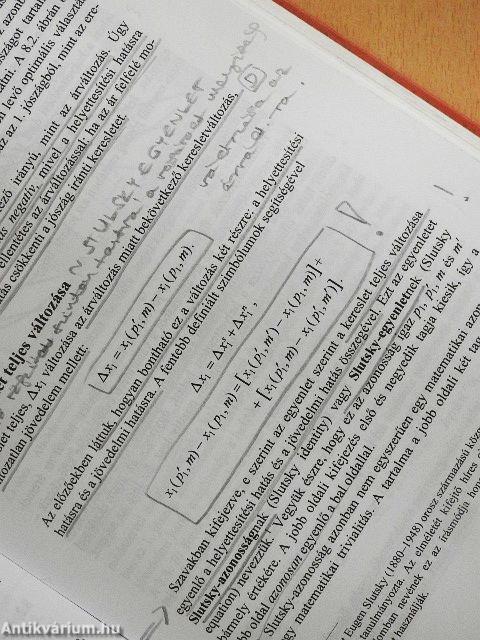 azon
ország tartal
ni. A 8.2. ábrán
levő optimális választá
az az 1. jószágból, mint az ere-
ező irányú, mint az árváltozás. Úgy
negatív, mivel a helyettesítési hatásra
ellentétes az árváltozással: ha az ár felfelé mo-
csökkenti a jószág iránti keresletet.
teljes változása ~ SLUTSKY EGYENLET
let teljes, Δx₁ változása az árváltozás miatt bekövetkező keresletváltozás, D
változatlan jövedelem mellett:
Δx₁ = x₁(p₁′, m) – x₁(p₁, m).
Az előzőekben láttuk, hogyan bontható ez a változás két részre: a helyettesítési
hatásra és a jövedelmi hatásra. A fentebb definiált szimbólumok segítségével
Δx₁ = Δx₁ˢ + Δx₁ⁿ,
x₁(p₁′, m) – x₁(p₁, m) = [x₁(p₁′, m′) – x₁(p₁, m)] +
+ [x₁(p₁′, m) – x₁(p₁′, m′)].
Szavakban kifejezve, e szerint az egyenlet szerint a kereslet teljes változása
egyenlő a helyettesítési hatás és a jövedelmi hatás összegével. Ezt az egyenletet
Slutsky-azonosságnak (Slutsky identity) vagy Slutsky-egyenletnek (Slutsky
equation) nevezzük. Vegyük észre, hogy ez az azonosság igaz p₁, p₁′, m és m′
bármely értékére. A jobb oldali kifejezés első és negyedik tagja kiesik, így a
jobb oldal azonosan egyenlő a bal oldallal.
Slutsky-azonosság azonban nem egyszerűen egy matematikai azon
egy matematikai trivialitás. A tartalma a jobb oldali két tag
Eugen Slutsky (1880–1948) orosz származású köz
tanulmányozta. Az elméletét kifejtő híres c
nevének ez az írásmódja hono
használjuk.
Antikvárium.hu